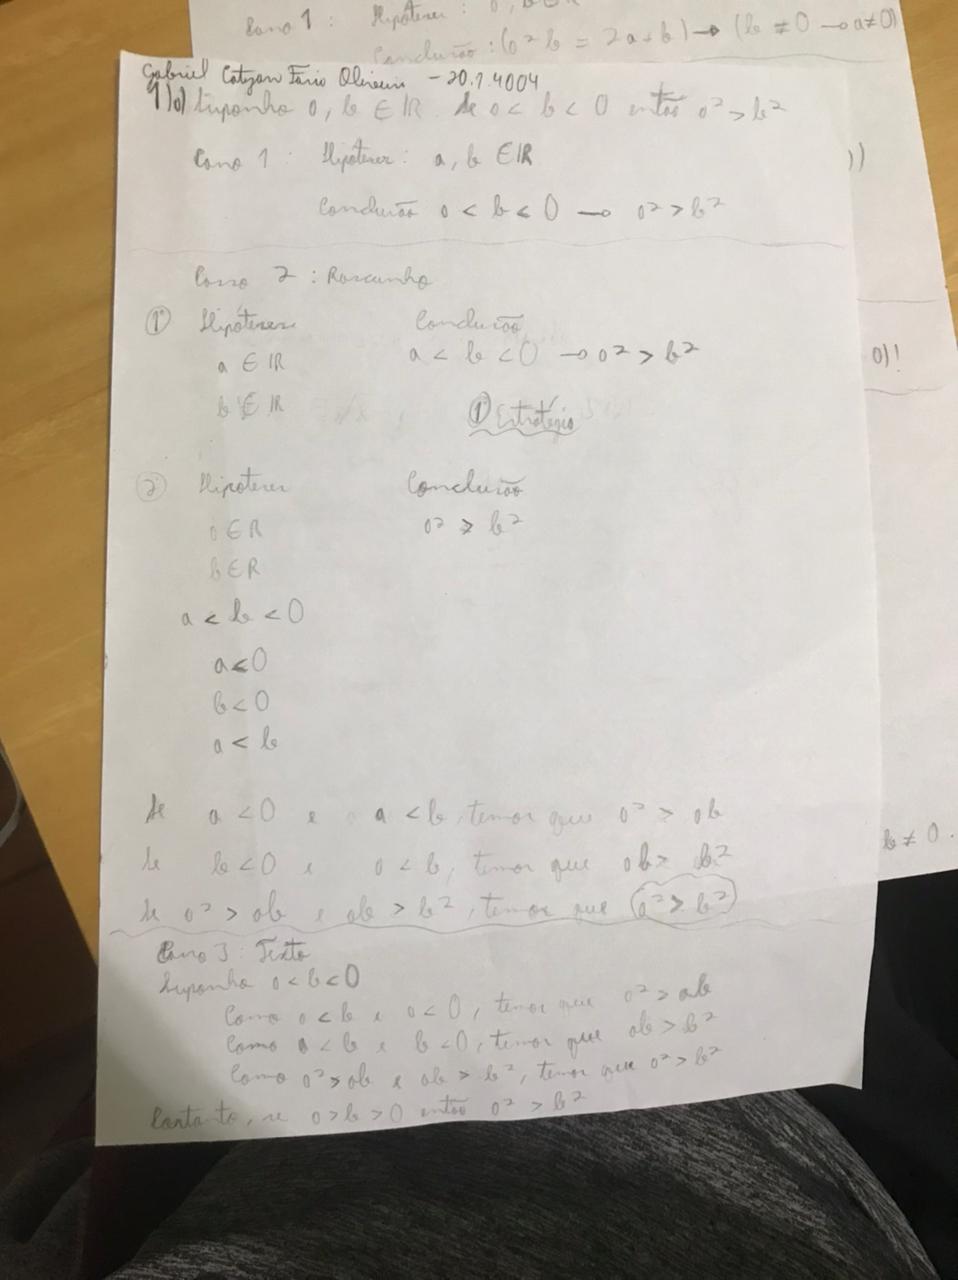 Passo 1 : Hipóteses : a, b ∈ R
Conclusão : (a² b = 2a + b) → (b ≠ 0 → a ≠ 0)
Gabriel Fario Oliveira - 20.1.4004
1)a) Suponha a, b ∈ IR. Se a < b < 0 então a² > b²
Passo 1 : Hipóteses : a, b ∈ IR
))
Conclusão a < b < 0 → a² > b²
Passo 2 : Rascunho
① Hipóteses Conclusão
a ∈ IR a < b < 0 → a² > b²
0)!
b ∈ IR ① Estratégia
② Hipóteses Conclusão
a ∈ R a² > b²
b ∈ R
a < b < 0
a < 0
b < 0
a < b
Se a < 0 e a < b, temos que a² > ab
b ≠ 0.
Se b < 0 e a < b, temos que ab > b²
Se a² > ab e ab > b², temos que a² > b²
Passo 3 : Texto
Suponha a < b < 0
Como a < b e a < 0, temos que a² > ab
Como a < b e b < 0, temos que ab > b²
Como a² > ab e ab > b², temos que a² > b²
Portanto, se a > b > 0 então a² > b²